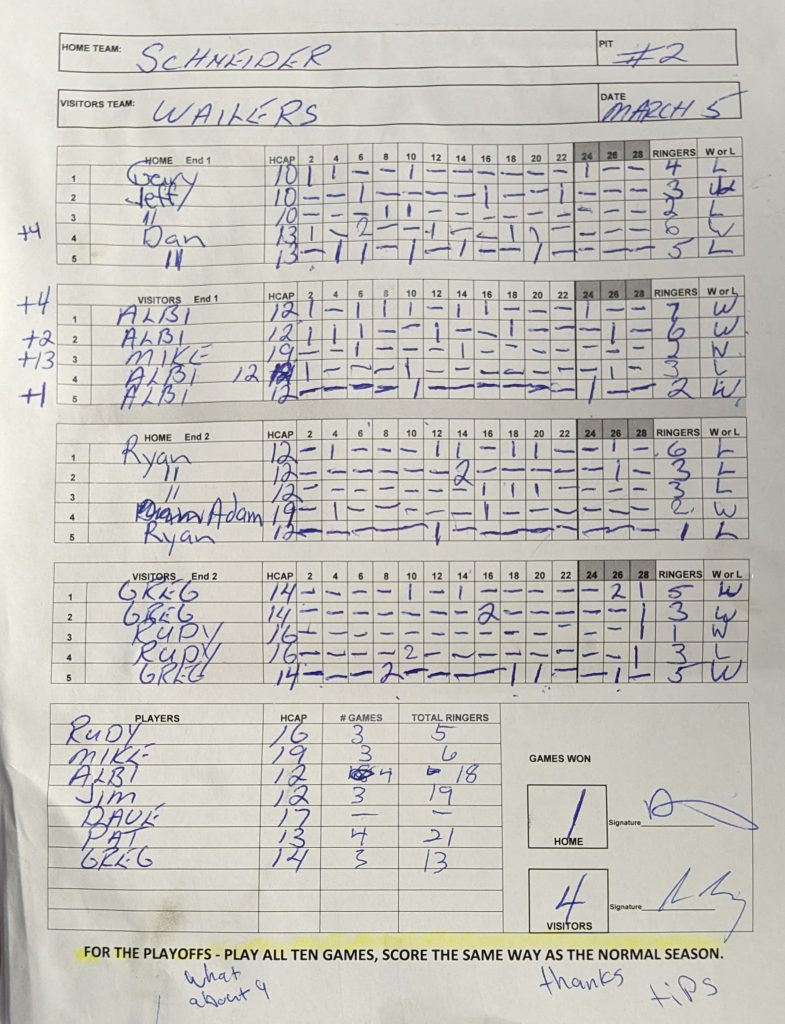 HOME TEAM: SCHNEIDER PIT #2
VISITORS TEAM: WAILERS DATE MARCH 5
HOME End 1 HCAP 2 4 6 8 10 12 14 16 18 20 22 24 26 28 RINGERS W or L
1 Gerry 10 1 1 - - 1 - - - - - - 1 - - 4 L
2 Jeff 10 - - 1 - - - - 1 - - 1 - - - 3
3 " 10 - - - 1 1 - - - - - - - - - 2 L
+4 4 Dan 13 1 - 2 - - 1 - - 1 1 - - - - 6 W
5 " 13 - 1 1 - 1 - 1 - - 1 - - - - 5 L
VISITORS End 1 HCAP 2 4 6 8 10 12 14 16 18 20 22 24 26 28 RINGERS W or L
+4 1 ALBI 12 1 - 1 1 1 - 1 1 - - - 1 - - 7 W
+2 2 ALBI 12 1 1 1 - - 1 - - 1 - - - 1 - 6 W
+13 3 MIKE 19 - - 1 - - - 1 - - - - - - - 2 W
4 ALBI 12 12 1 - - - 1 - - - - - - - 1 - 3 L
+1 5 ALBI 12 - - - - 1 - - - - - - 1 - - 2 W
HOME End 2 HCAP 2 4 6 8 10 12 14 16 18 20 22 24 26 28 RINGERS W or L
1 Ryan 12 - 1 - - - 1 1 - 1 1 - - 1 - 6 L
2 " 12 - - - - - - 2 - - - - - 1 - 3 L
3 " 12 - - - - - - - 1 1 1 - - - - 3 L
4 Adam 19 - 1 - - - - - 1 - - - - - - 2 W
5 Ryan 12 - - - - - 1 - - - - - - - - 1 L
VISITORS End 2 HCAP 2 4 6 8 10 12 14 16 18 20 22 24 26 28 RINGERS W or L
1 GREG 14 - - - - 1 - 1 - - - - - 2 1 5 W
2 GREG 14 - - - - - - - 2 - - - - - 1 3 W
3 RUDY 16 - - - - - - - - - - - - - 1 1 W
4 RUDY 16 - - - - 2 - - - - - - - - 1 3 L
5 GREG 14 - - - 2 - - - - 1 1 - - 1 - 5 W
PLAYERS HCAP # GAMES TOTAL RINGERS
RUDY 16 3 5
MIKE 19 3 6
ALBI 12 4 18
JIM 12 3 19
DAVE 17 - -
PAT 13 4 21
GREG 14 3 13
GAMES WON
1 Signature
HOME
4 Signature
VISITORS
FOR THE PLAYOFFS - PLAY ALL TEN GAMES, SCORE THE SAME WAY AS THE NORMAL SEASON.
what
about
thanks
tips